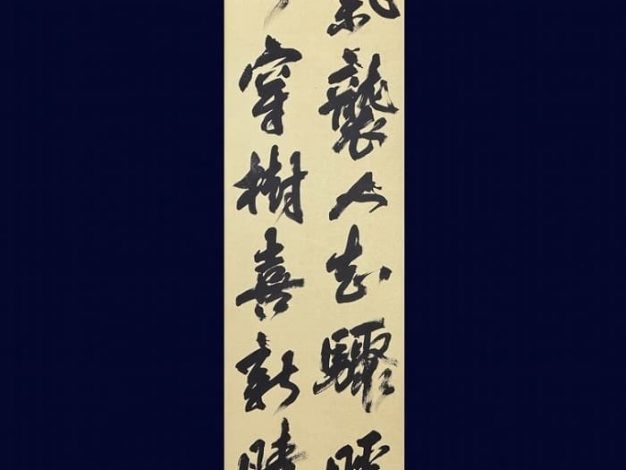 氣襲人知驟暖
穿樹喜新晴